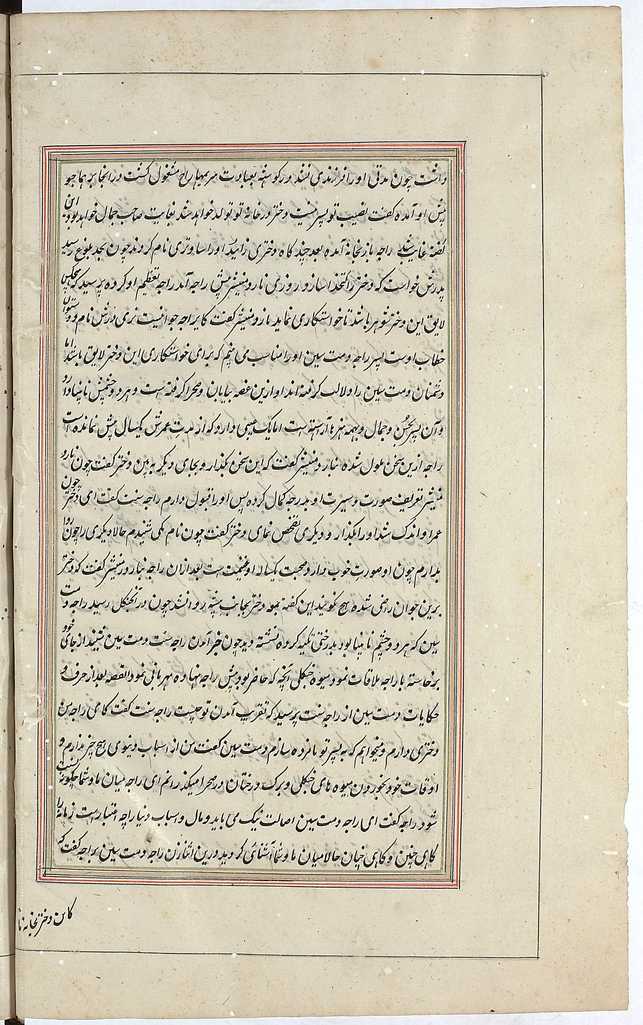 داشت چون مدتی او را فرزندی نشد در کوه به عبادت بر مهاراج مشغول گشت در انجا برهماجیو
پیش او آمده گفت نصیب تو پسر نیست دختر در خانهٔ تو تولد خواهد شد بغایت صاحب جمال خواهد بود این
گفته غایب شد راجه باز بخانه آمده بعد چند گاه دختری زائید او را ساوتری نام کردند چون بحد بلوغ رسید
پدرش خواست که دختر را کتخدا سازد روزی نارد منیشر پیش راجه آمد راجه تعظیم او کرده پرسید که بمجلس
لایق این دختر شوهر باشد تا خواستکاری نماید نارد منیشر گفت که ای راجه جوانیست نام و ستوان
خطاب اوست پسر راجه دمت سین او را مناسب می بینم که برای خواستکاری این دختر لایق باشد اما
دشمنان دمت سین را ولایت گرفته اند او ازین غصه بیابان و صحرا گرفته است و هر دو چشمش نابینا دارد
و آن پسر بحسن و جمال و بهمه هنرها آراسته است اما یک عیبی دارد که از مدت عمرش یکسال بیش نمانده است
راجه ازین سخن ملول شده بنارد منیشر گفت که این سخن بگذار و بجای دیگر به بین دختر گفت چون نارد
منیشر تعریف صورت و سیرت او بدرجه کمال کرده پس او را قبول دارم راجه سنت گفت ای دختر چون
عمر او اندک شد او را بگذار و دیگری تفحص نمای دختر گفت چون نام کسی شنیدم حالا دیگری را چون روا
بدارم چون او صورت خوب دارد صحبت یکساله او غنیمت است بعد ازان راجه بنارد منیشر گفت که دختر
برین جوان راضی شده هیچ نگویند این گفته همراه دختر بجانب بیشه روانه شد چون در آن جنگل رسید راجه دمت
سین که هر دو چشم نابینا بود بدرختی تکیه کرده نشسته دید چون خبر آمدن راجه سنت دمت سین شنید از جای خود
برخاسته با راجه ملاقات نمود میوه جنگلی آنچه که حاضر بود پیش راجه نهاده مهربانی نمود القصه بعد از حرف و
حکایات دمت سین از راجه سنت پرسید که تقریب آمدن تو چیست راجه سنت گفت که ای راجه من
دختری دارم و میخواهم که به پسر تو نامزده سازم دمت سین گفت من از اسباب دنیوی هیچ خبر ندارم و
اوقات خود بخوردن میوه های جنگلی و برگ درختان در صحرا میگذرانم ای راجه میان ما و شما چگونه نسبت
شود راجه گفت ای راجه دمت سین اصالت نیک می باید و مال و اسباب دنیا را چه اعتبار است زمانه را
گاهی چنین و گاهی چنان حالا میان ما و شما آشنائی گردید درین اثنا زن راجه دمت سین براجه گفت که
کاین دختر بخانه ما